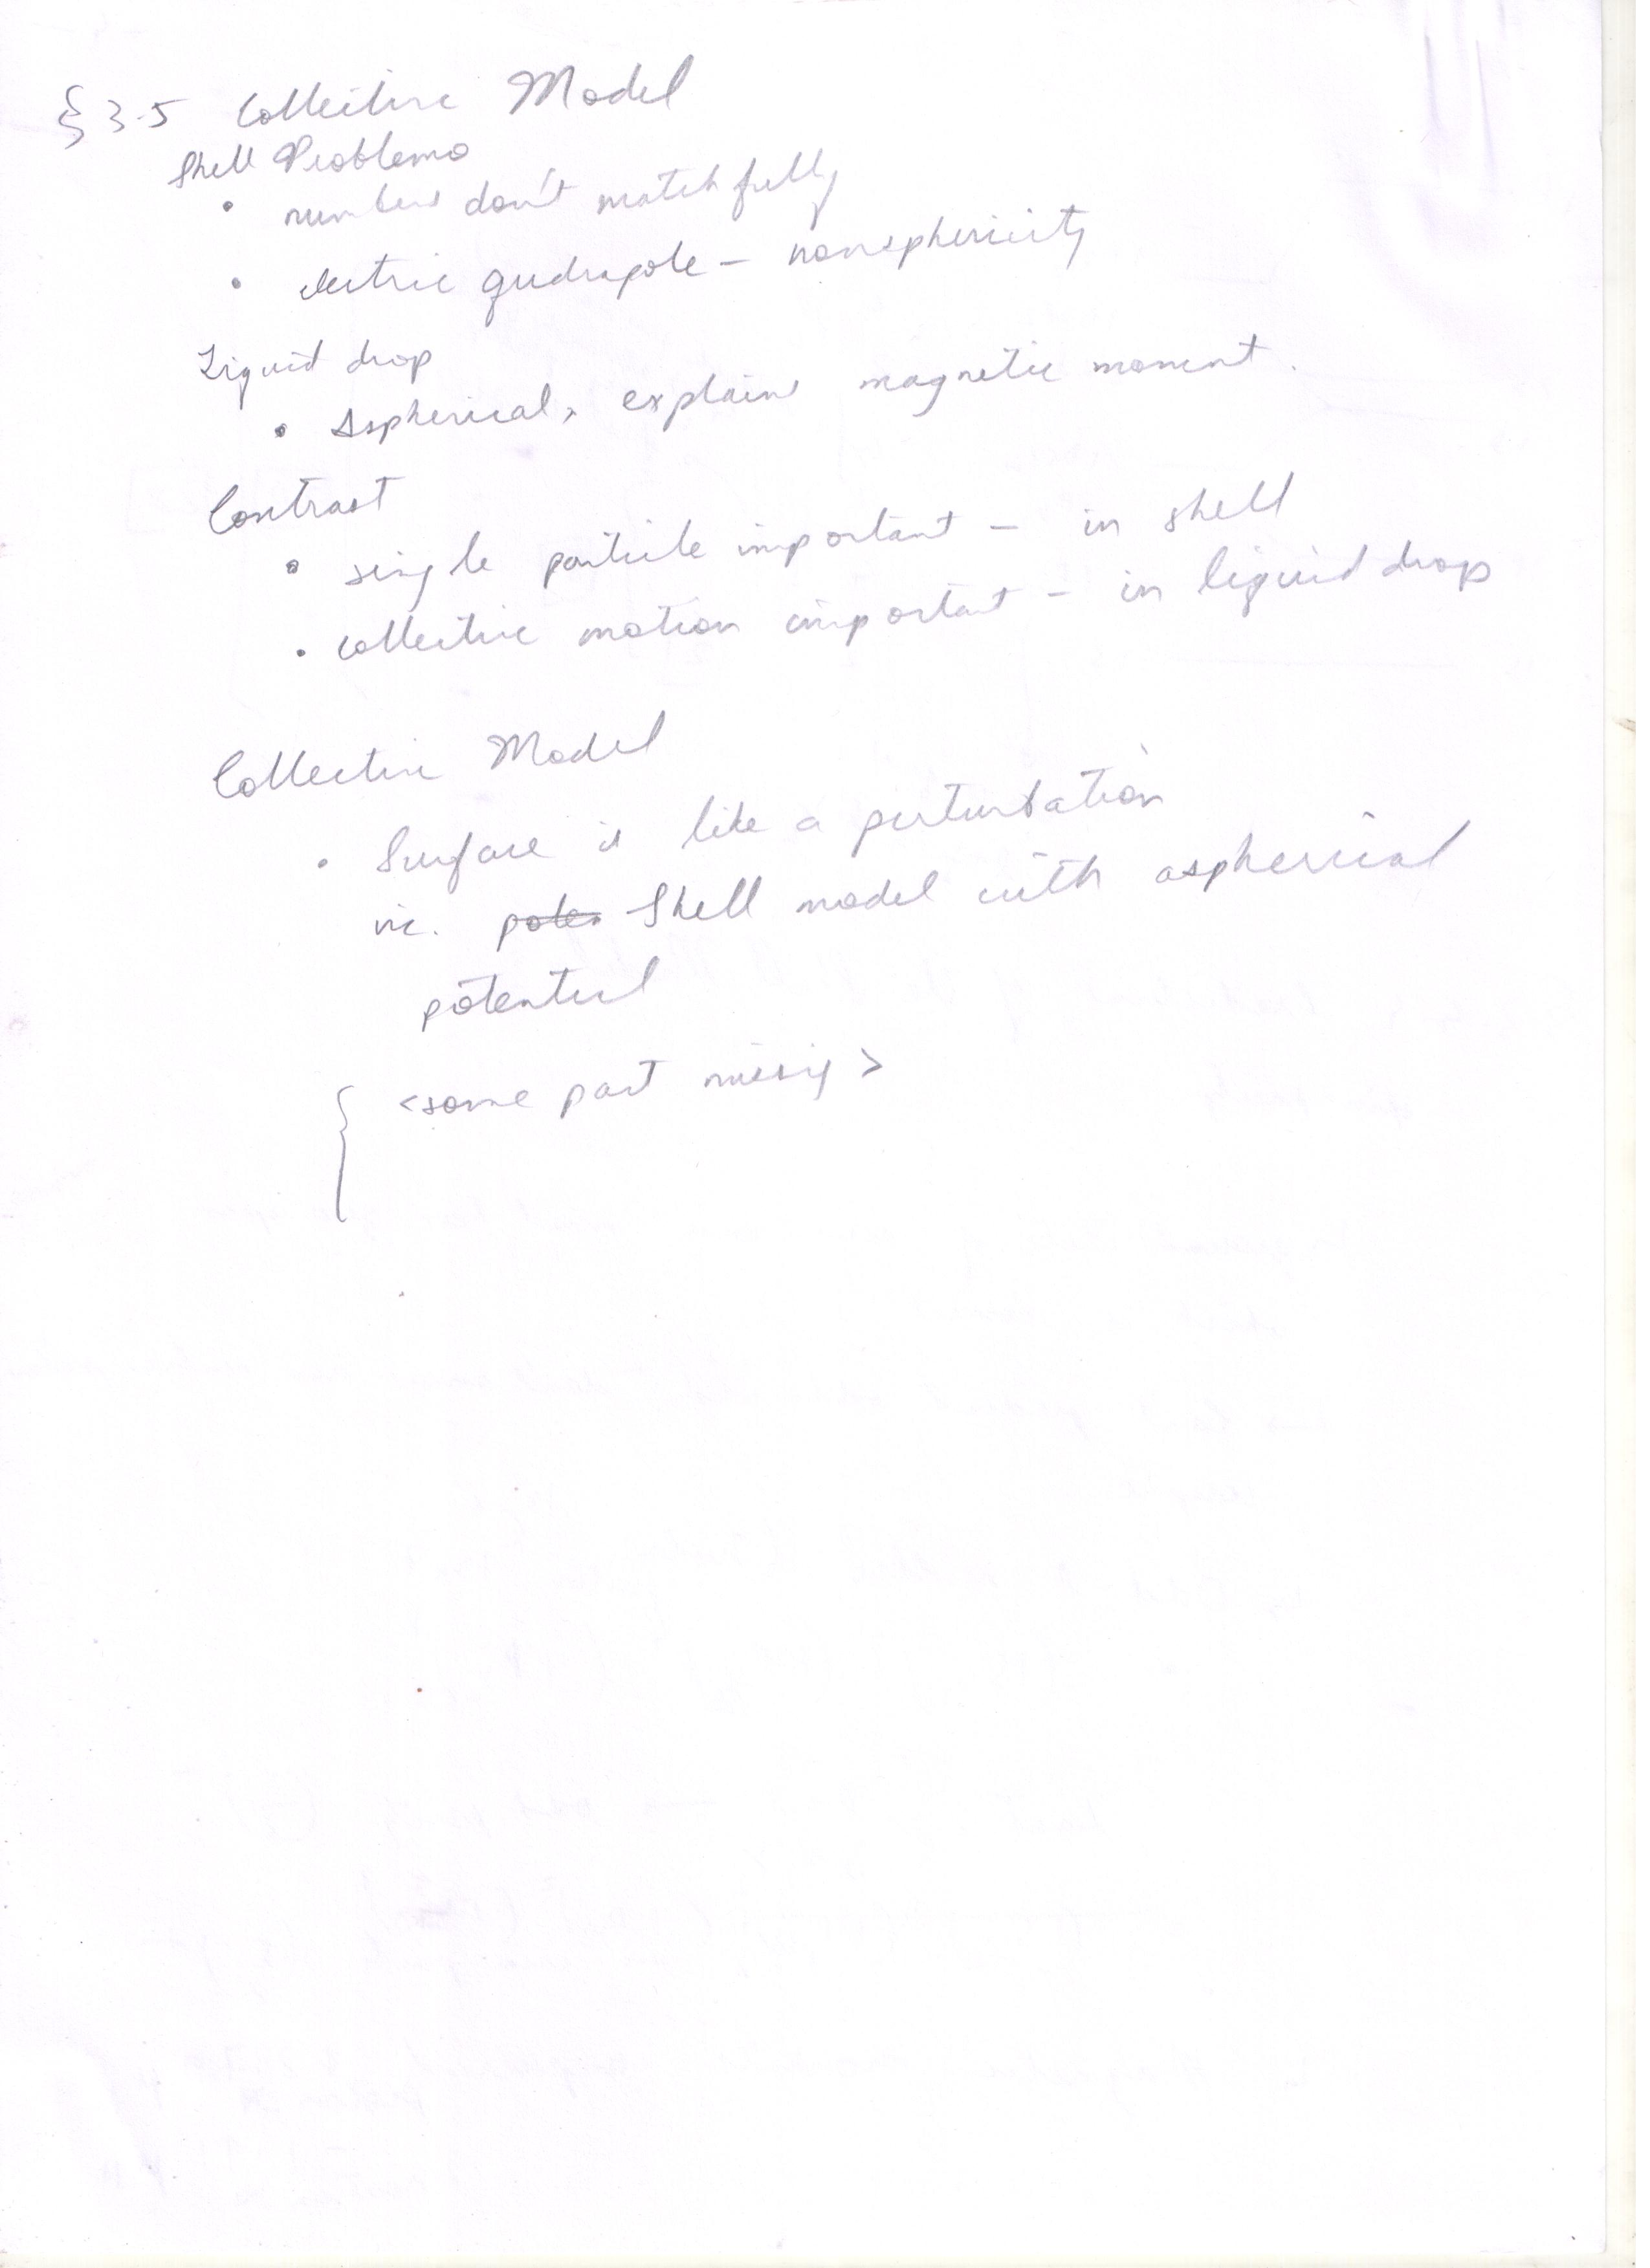 § 3.5 Collective Model
Shell Problems
• numbers don't match fully
• electric qudrapole – nonsphericity
Liquid drop
• Aspherical, explains magnetic moment.
Contrast
• single particle important – in shell
• collective motion important – in liquid drop
Collective Model
• Surface is like a perturbation
Shell model with aspherical
potential
{ <some part missing>